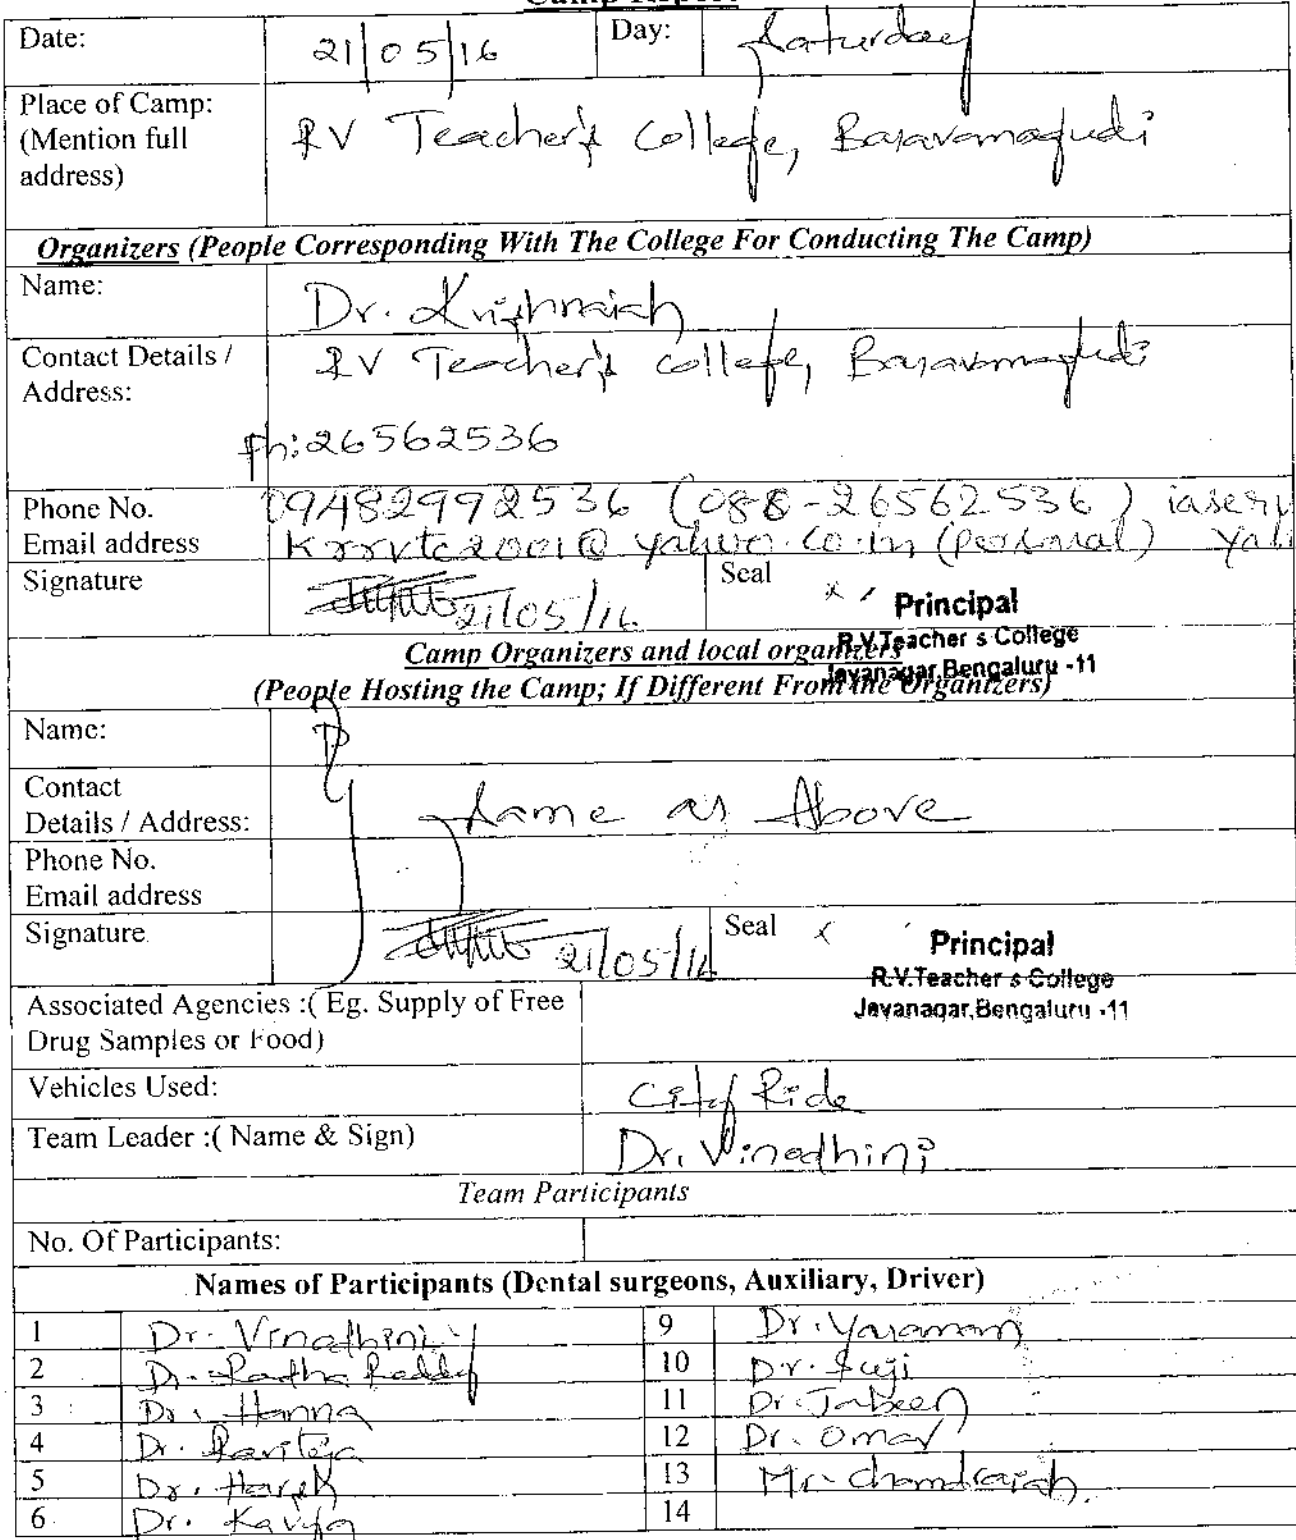 Camp Report
Date: 21/05/16 Day: Saturday
Place of Camp: RV Teacher's College, Basavanagudi
(Mention full
address)
Organizers (People Corresponding With The College For Conducting The Camp)
Name: Dr. Krishnaiah
Contact Details / RV Teacher's College, Basavanagudi
Address:
Ph: 26562536
Phone No. 09482992536 (088-26562536) iaserv
Email address Krrvtc2001@yahoo.co.in (Personal) Yah
Signature 21/05/16 Seal Principal
R.V.Teacher s College
Jayanagar,Bengaluru -11
Camp Organizers and local organizers
(People Hosting the Camp; If Different From the Organizers)
Name:
Contact
Details / Address: Same as Above
Phone No.
Email address
Signature 21/05/16 Seal Principal
R.V.Teacher s College
Jayanagar,Bengaluru -11
Associated Agencies :( Eg. Supply of Free
Drug Samples or Food)
Vehicles Used: City Ride
Team Leader :( Name & Sign) Dr. Vinodhini
Team Participants
No. Of Participants:
Names of Participants (Dental surgeons, Auxiliary, Driver)
1 Dr. Vinodhini 9 Dr.
2 Dr. Reddy 10 Dr. Suji
3 Dr. Hanna 11 Dr. Jabeen
4 Dr. Raviteja 12 Dr. Omar
5 Dr. Harsh 13 Mr. Chandraiah.
6 Dr. Kavya 14